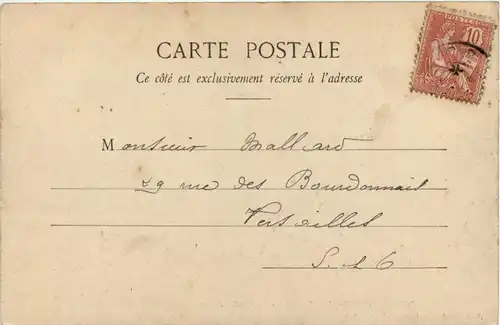 CARTE POSTALE
Ce côté est exclusivement réservé à l'adresse
10
Monsieur Mallard
29 rue des Bourdonnais
Versailles
S. et O